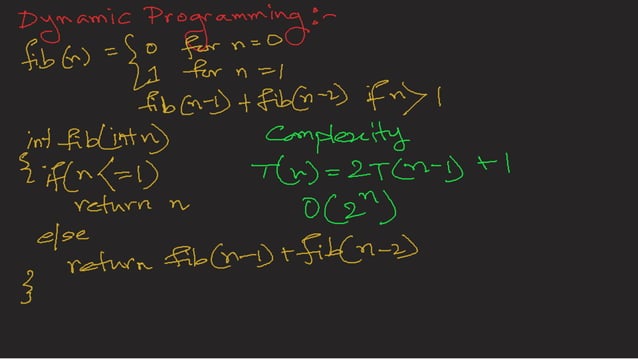 Dynamic Programming:-
fib(n) = { 0 for n=0
1 for n=1
fib(n-1) + fib(n-2) if n > 1
int fib(int n)
{ if(n<=1)
return n
else
return fib(n-1) + fib(n-2)
}
Complexity
T(n) = 2T(n-1) + 1
O(2^n)